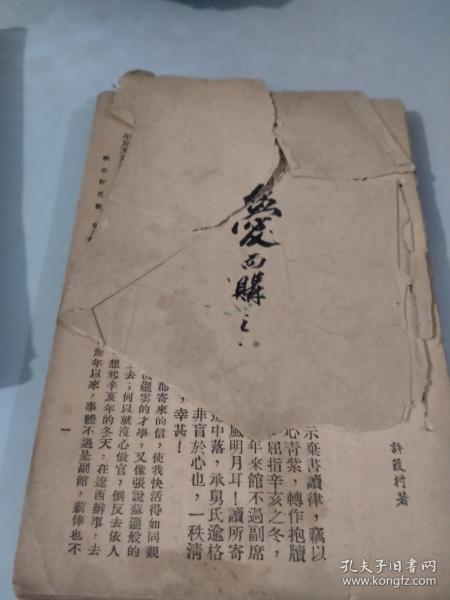 愛而購之.
許葭村著
示葉書讀律，竊以
心青紫，轉作抱牘
屈指辛亥之冬，
年來館不過副席
風明月耳！讀所寄
道中落，承舅氏逾格
非盲於心也，一秩清
，幸甚！
郡寄來的信，使我快活得如同親
趙雲的才學，又像張說蘇頲般的
去；何以就沒心做官，倒反去依人
想起辛亥年的冬天，在遼西辦事，去
幾年以來，事體不過是副館，薪俸也不
一
孔夫子旧书网